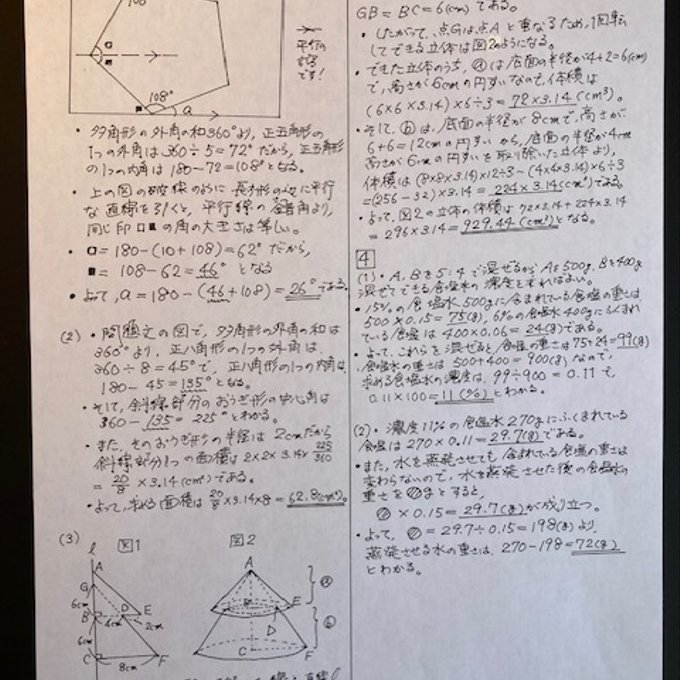 108°
平行の
記号
です!
108°
a
・多角形の外角の和360°より、正五角形の
1つの外角は360÷5=72°だから、正五角形
の1つの内角は180-72=108°となる。
・上の図の破線のように長方形の辺に平行
な直線を引くと、平行線の錯角より、
同じ印の角の大きさは等しい。
=180-(10+108)=62°だから、
=108-62=46°となる
・よって、a=180-(46+108)=26°である。
(2)・問題文の図で、多角形の外角の和は
360°より、正八角形の1つの外角は、
360÷8=45°で、正八角形の1つの内角は
180-45=135°となる。
・そして、斜線部分のおうぎ形の中心角は
360-135=225°とわかる。
・また、そのおうぎ形の半径は2cmだから
斜線部分1つの面積は2×2×3.14×225/360
=20/8×3.14(cm²)である。
・よって、求める面積は20/8×3.14×8=62.8(cm²)。
(3)
図1
図2
l
A
G
6cm
B
4cm
D
2cm
E
6cm
C
8cm
F
A
B
E
D
C
F
ⓐ
ⓑ
GB=BC=6(cm)である。
・したがって、点Gは点Aと重なるため、1回転
してできる立体は図2のようになる。
・できた立体のうち、ⓐは底面の半径が4+2=6(cm)
で、高さが6cmの円すいなので、体積は
(6×6×3.14)×6÷3=72×3.14(cm³)。
・そして、ⓑは、底面の半径が8cmで、高さが
6+6=12cmの円すいから、底面の半径が4cm
高さが6cmの円すいを取り除いた立体より、
体積は(8×8×3.14)×12÷3-(4×4×3.14)×6÷3
=(256-32)×3.14=224×3.14(cm³)である。
・よって、図2の立体の体積は72×3.14+224×3.14
=296×3.14=929.44(cm³)となる。
4
(1)・A、Bを5:4で混ぜるからAを500g、Bを400g
混ぜてできる食塩水の濃度を求めればよい。
・15%の食塩水500gに含まれている食塩の重さは、
500×0.15=75(g)、6%の食塩水400gにふくまれ
ている食塩は400×0.06=24(g)である。
・よって、これらを混ぜると、食塩の重さは75+24=99(g)
、食塩水の重さは500+400=900(g)なので、
求める食塩水の濃度は、99÷900=0.11で、
0.11×100=11(%)とわかる。
(2)・濃度11%の食塩水270gにふくまれている
食塩は270×0.11=29.7(g)である。
・また、水を蒸発させても、含まれている食塩の重さは
変わらないので、水を蒸発させた後の食塩水の
重さを gとすると、
×0.15=29.7(g)が成り立つ。
・よって、 =29.7÷0.15=198(g)より、
蒸発させる水の重さは、270-198=72(g)
とわかる。